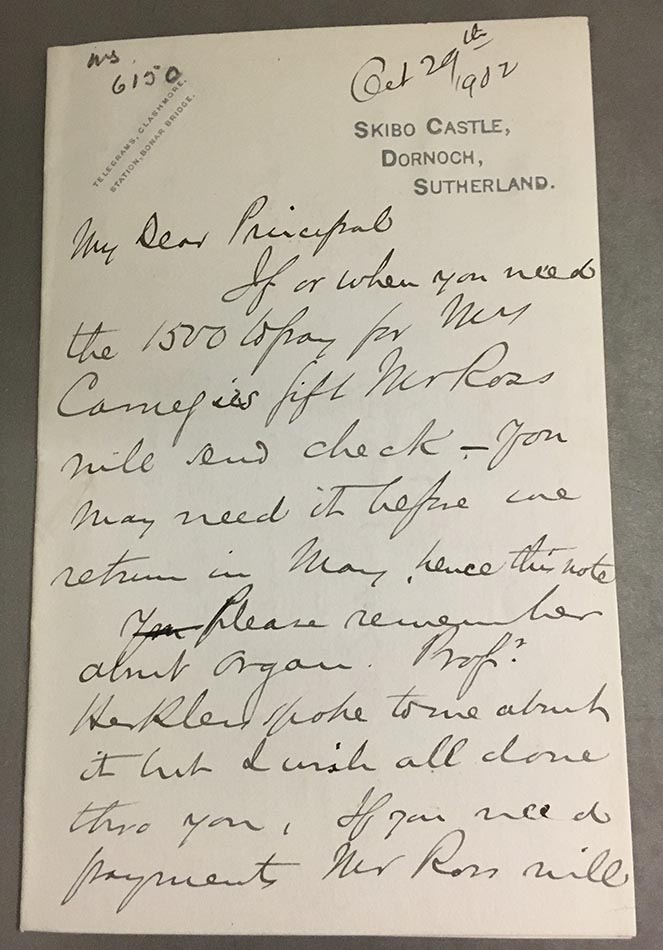 ms
6150
TELEGRAMS, CLASHMORE.
STATION, BONAR BRIDGE.
Oct 29th
1902
SKIBO CASTLE,
DORNOCH,
SUTHERLAND.
My Dear Principal
If or when you need
the 1500 to pay for Mrs
Carnegies gift Mr Ross
will send check – You
may need it before we
return in May, hence this note
You Please remember
about Organ. Prof.
Herkless spoke to me about
it but I wish all done
thro you, If you need
payments Mr Ross will